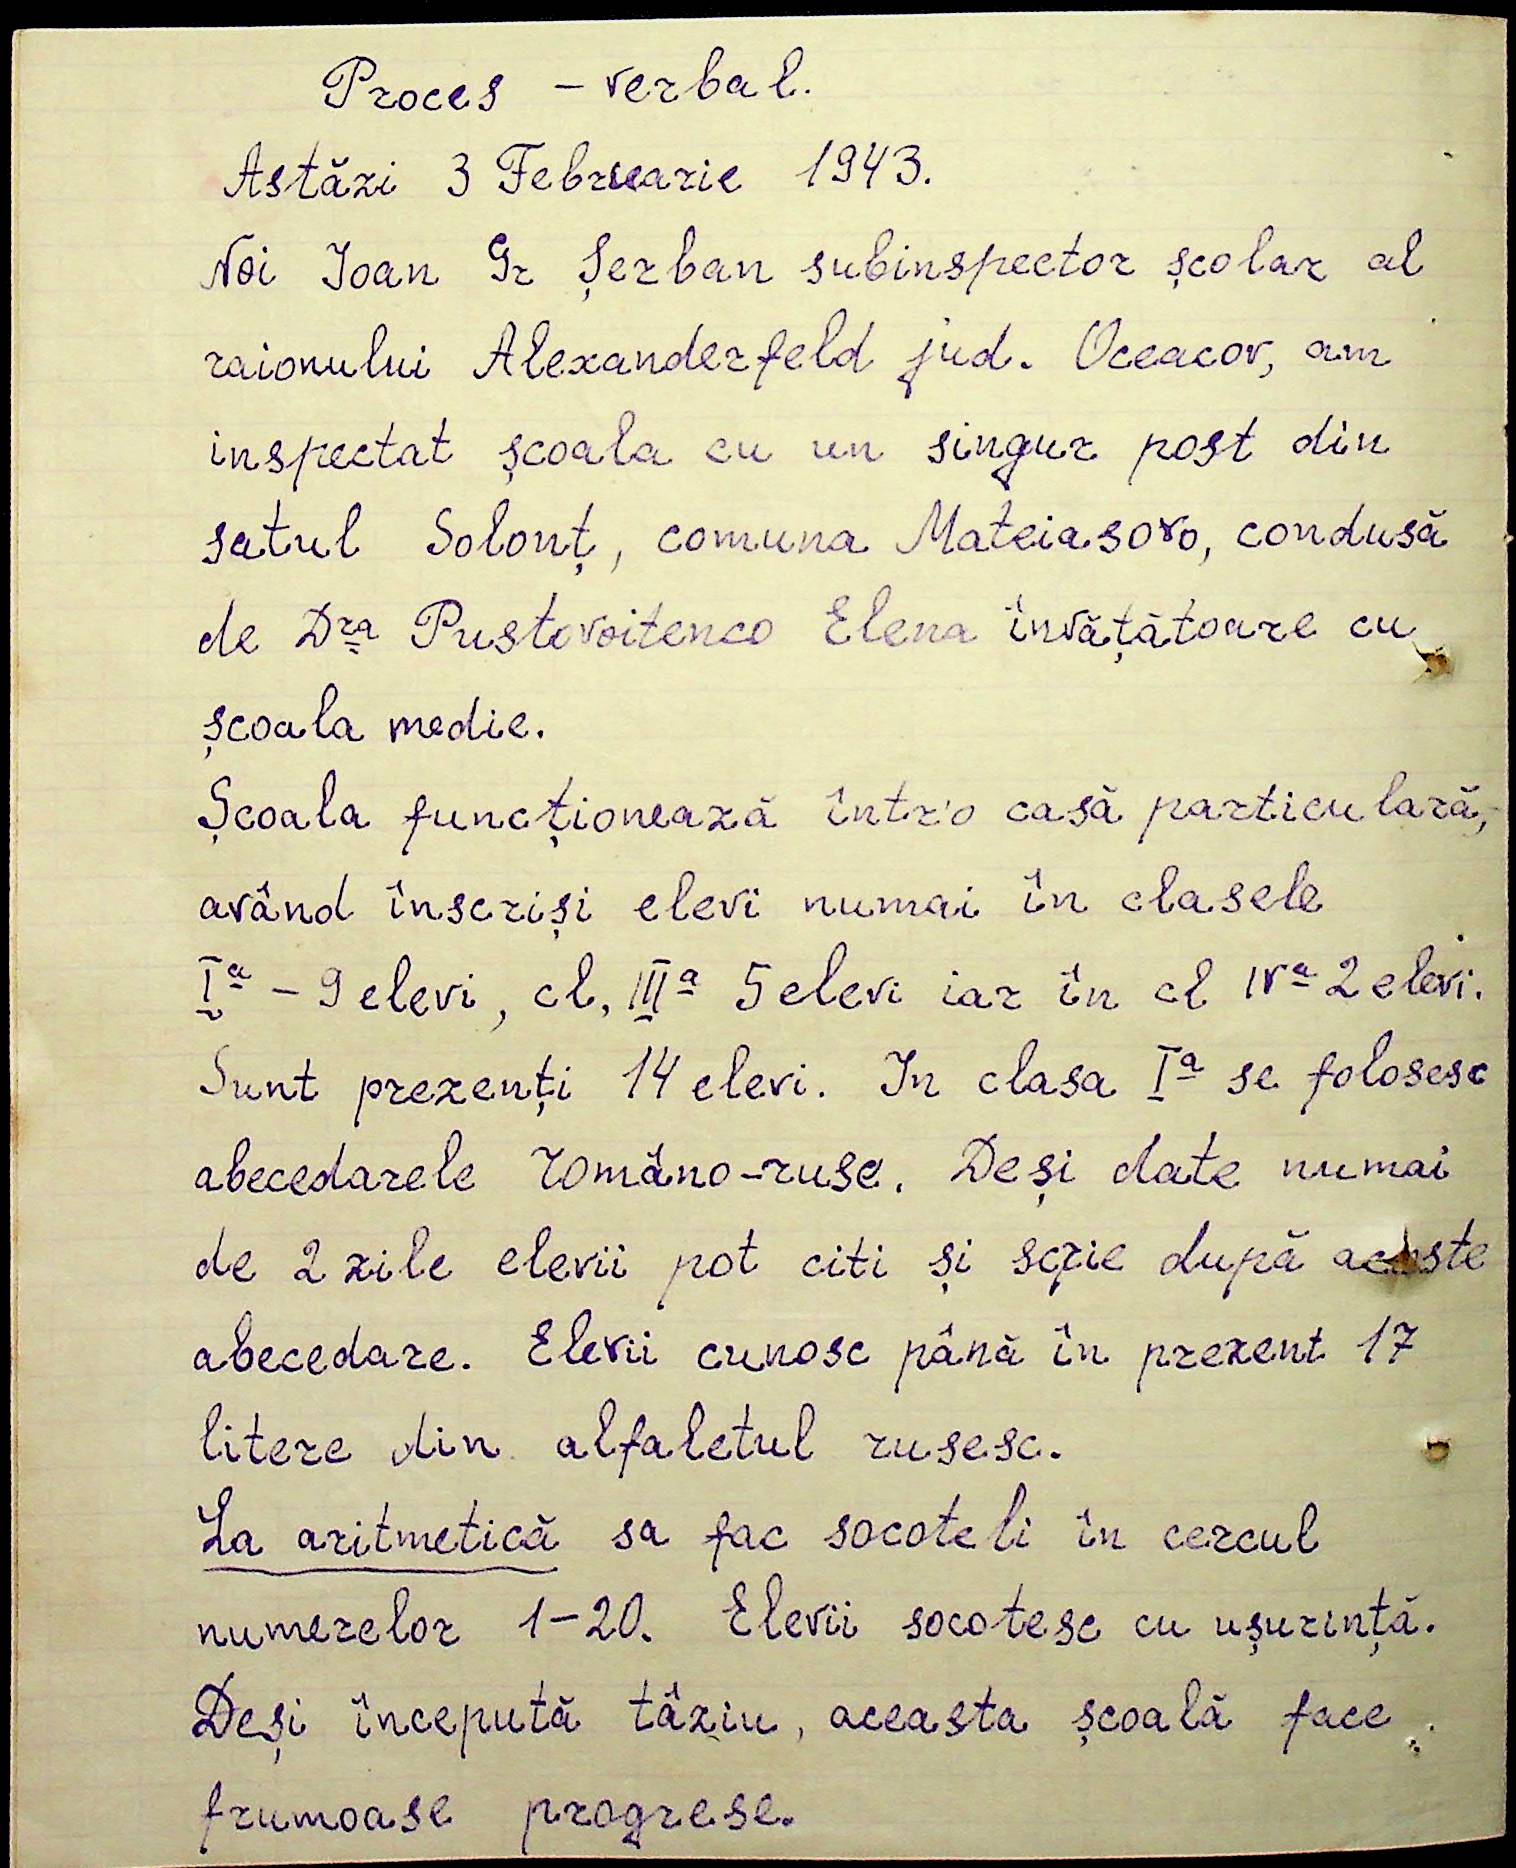 Proces - verbal.
Astăzi 3 Februarie 1943.
Noi Ioan Gr Șerban subinspector școlar al
raionului Alexanderfeld jud. Oceacov, am
inspectat școala cu un singur post din
satul Solonț, comuna Mateiasovo, condusă
de Dra Pustovoitenco Elena învățătoare cu
școala medie.
Școala funcționează într'o casă particulară,
având înscriși elevi numai în clasele
Ia - 9 elevi, cl. IIIa 5 elevi iar în cl IVa 2 elevi.
Sunt prezenți 14 elevi. In clasa Ia se folosesc
abecedarele româno-ruse. Deși date numai
de 2 zile elevii pot citi și scrie după aceste
abecedare. Elevii cunosc până în prezent 17
litere din alfaletul rusesc.
La aritmetică sa fac socoteli în cercul
numerelor 1-20. Elevii socotesc cu ușurință.
Deși începută tâziu, aceasta școală face
frumoase progrese.